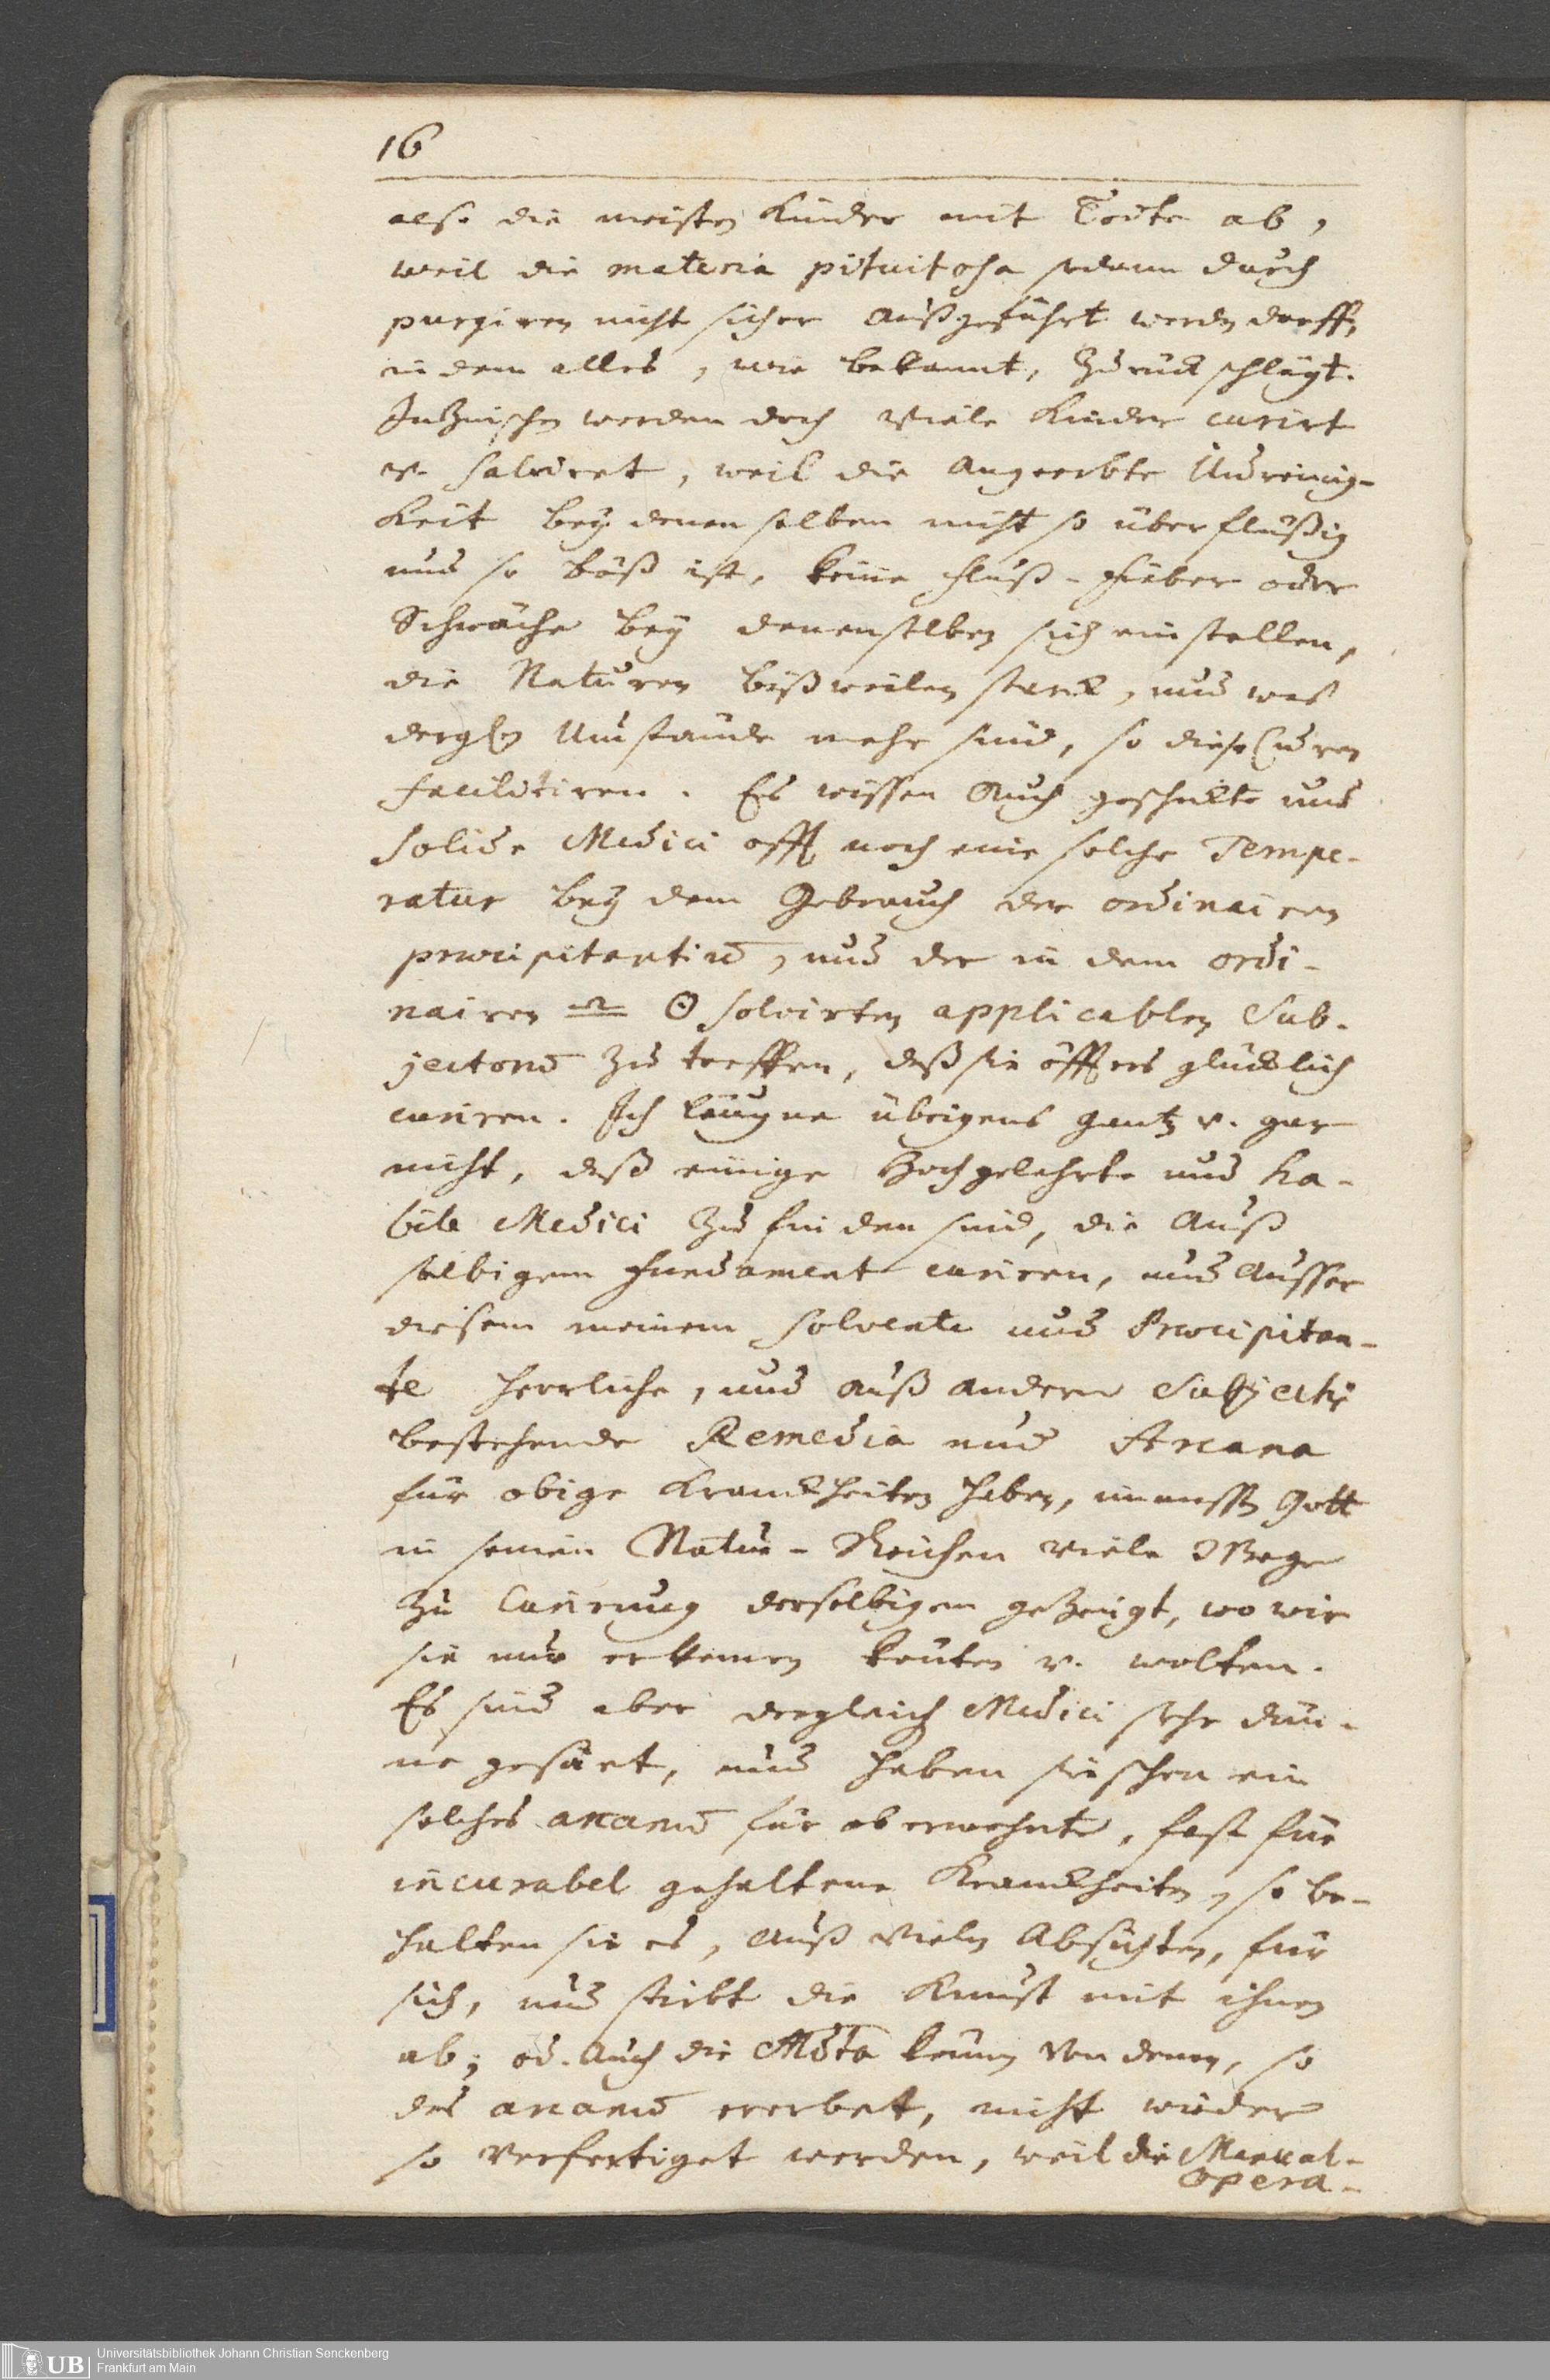 16
also die meisten Kinder mit Todte ab,
weil die materia pituitosa sodann durch
purgiren nicht sicher außgeführt werdn dorffn,
in dem alles, wie bekannt, zurück schlägt.
Inzwischen werden doch viele Kinder curirt
v. salviret, weil die angeerbte Unreinig-
keit bey denenselben nicht so überflüßig
und so böß ist, keine Fluß-Fieber oder
Schwäche bey denenselben sich einstellen,
die Naturen bißweilen starck, und was
dergln Umstände mehr sind, so diese Curen
facilitiren. Es wissen auch geschickte und
solide Medici offt noch eine solche Tempe-
ratur bey dem Gebrauch der ordinairen
præcipitantiū, und der in dem ordi-
nairen solvirten applicablen Sub-
jectorū zu treffen, daß sie öffters glücklich
curiren. Ich läugne übrigens gantz v. gar
nicht, daß einige Hochgelehrte und ha-
bile Medici zu finden sind, die auß
selbigem Fundament curiren, und ausser
diesem meinem solvente und Præcipitan-
te herrliche, und auß andern Subjectis
bestehende Remedia und Arcana
für obige Kranckheiten haben, immassn Gott
in seinen Natur-Reichen viele Wege
zu Curirung derselbigen gezeigt, wo wir
sie nur erkennen könten v. wolten.
Es sind aber dergleich Medici sehr dün-
ne gesäet, und haben sie schon ein
solches arcanū für ob erwehnte, fast für
incurabel gehaltene Kranckheiten, so be-
halten sie es, auß vielen Absichten, für
sich, und stirbt die Kunst mit ihnen
ab; od. auch die Mdta können von denen, so
das arcanū ererbet, nicht wieder
so verfertiget werden, weil die Manual-
opera-
Universitätsbibliothek Johann Christian Senckenberg
Frankfurt am Main
UB